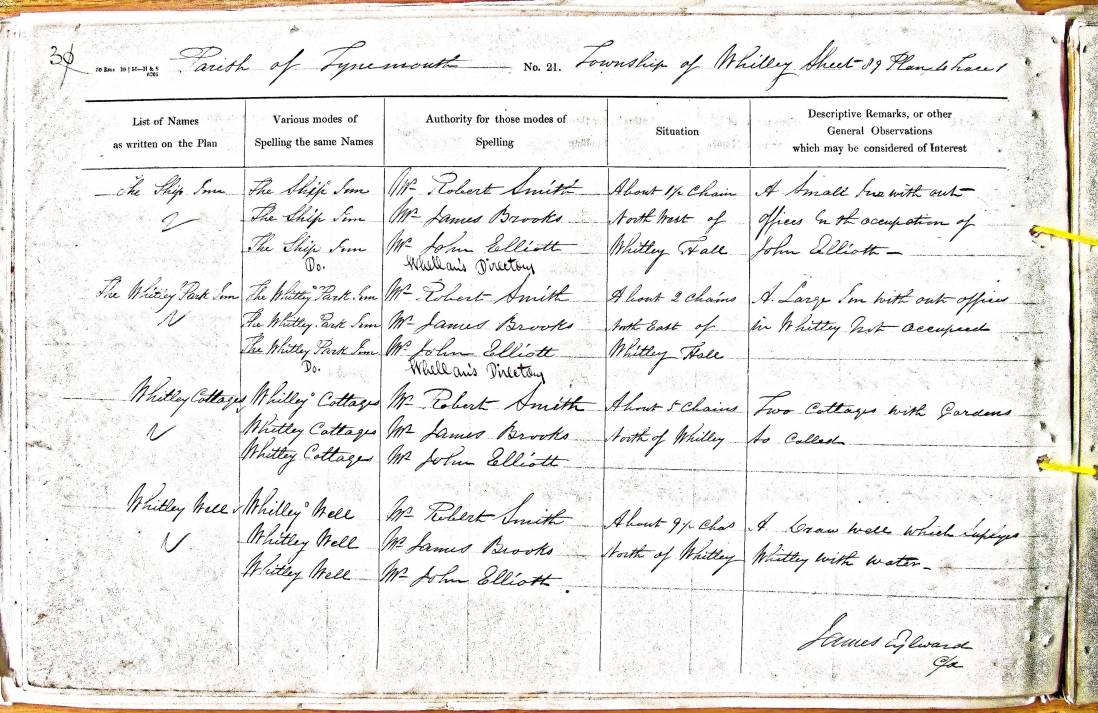 Parish of Tynemouth No. 21. Township of Whitley Sheet 89 Plan 4 Trace 1
List of Names
as written on the Plan
Various modes of
Spelling the same Names
Authority for those modes of
Spelling
Situation
Descriptive Remarks, or other
General Observations
which may be considered of Interest
The Ship Inn The Ship Inn Mr. Robert Smith About 1½ Chain A Small Inn with out
The Ship Inn Mr. James Brooks North West of offices in the occupation of
The Ship Inn Mr. John Elliott Whitley Hall John Elliott
Do. Whellan's Directory
The Whitley Park Inn The Whitley Park Inn Mr. Robert Smith About 2 Chains A Large Inn with out offices
The Whitley Park Inn Mr. James Brooks North East of in Whitley Not occupied
The Whitley Park Inn Mr. John Elliott Whitley Hall
Do. Whellan's Directory
Whitley Cottages Whitley Cottages Mr. Robert Smith About 5 Chains Two Cottages with Gardens
Whitley Cottages Mr. James Brooks North of Whitley So Called
Whitley Cottages Mr. John Elliott
Whitley Well Whitley Well Mr. Robert Smith About 9½ Chas A Draw well which supplys
Whitley Well Mr. James Brooks North of Whitley Whitley with water
Whitley Well Mr. John Elliott
James Aylward
C/A